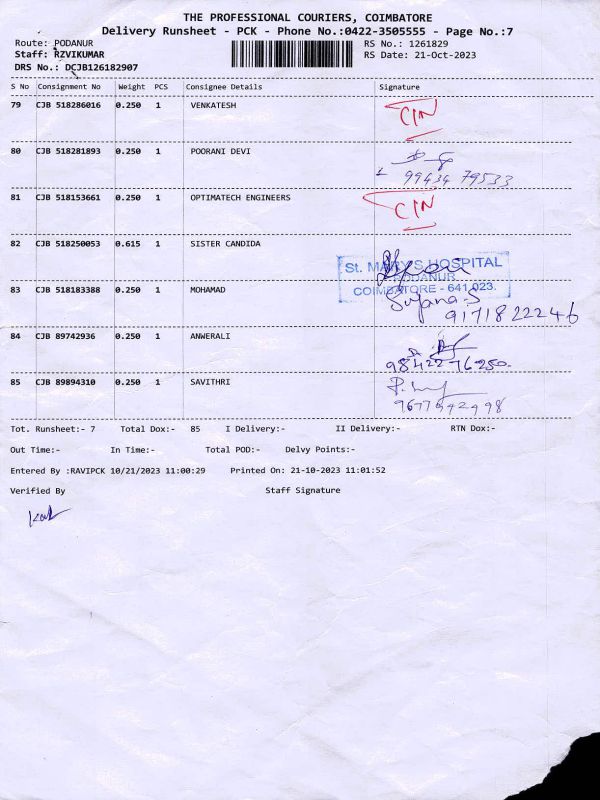 THE PROFESSIONAL COURIERS, COIMBATORE
Delivery Runsheet - PCK - Phone No.:0422-3505555 - Page No.:7
Route: PODANUR RS No.: 1261829
Staff: RZVIKUMAR RS Date: 21-Oct-2023
DRS No.: DCJB126182907
S No Consignment No Weight PCS Consignee Details Signature
79 CJB 518286016 0.250 1 VENKATESH CIN
80 CJB 518281893 0.250 1 POORANI DEVI
99434 79533
81 CJB 518153661 0.250 1 OPTIMATECH ENGINEERS CIN
82 CJB 518250053 0.615 1 SISTER CANDIDA
St. MARY'S HOSPITAL
PODANUR
COIMBATORE - 641 023.
83 CJB 518183388 0.250 1 MOHAMAD Sujana.S
9171822246
84 CJB 89742936 0.250 1 ANWERALI
98422 76250.
85 CJB 89894310 0.250 1 SAVITHRI
Tot. Runsheet:- 7 Total Dox:- 85 I Delivery:- II Delivery:- RTN Dox:-
Out Time:- In Time:- Total POD:- Delvy Points:-
Entered By :RAVIPCK 10/21/2023 11:00:29 Printed On: 21-10-2023 11:01:52
Verified By Staff Signature